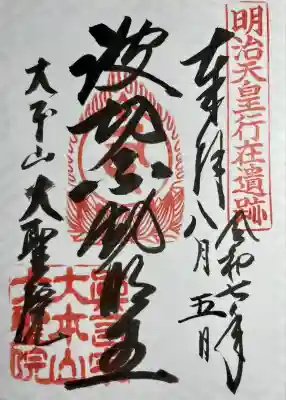 明治天皇行在遺跡
令和七年
奉拝 八月 五日
波切不動明王
大本山 大聖院
大本山
大聖院